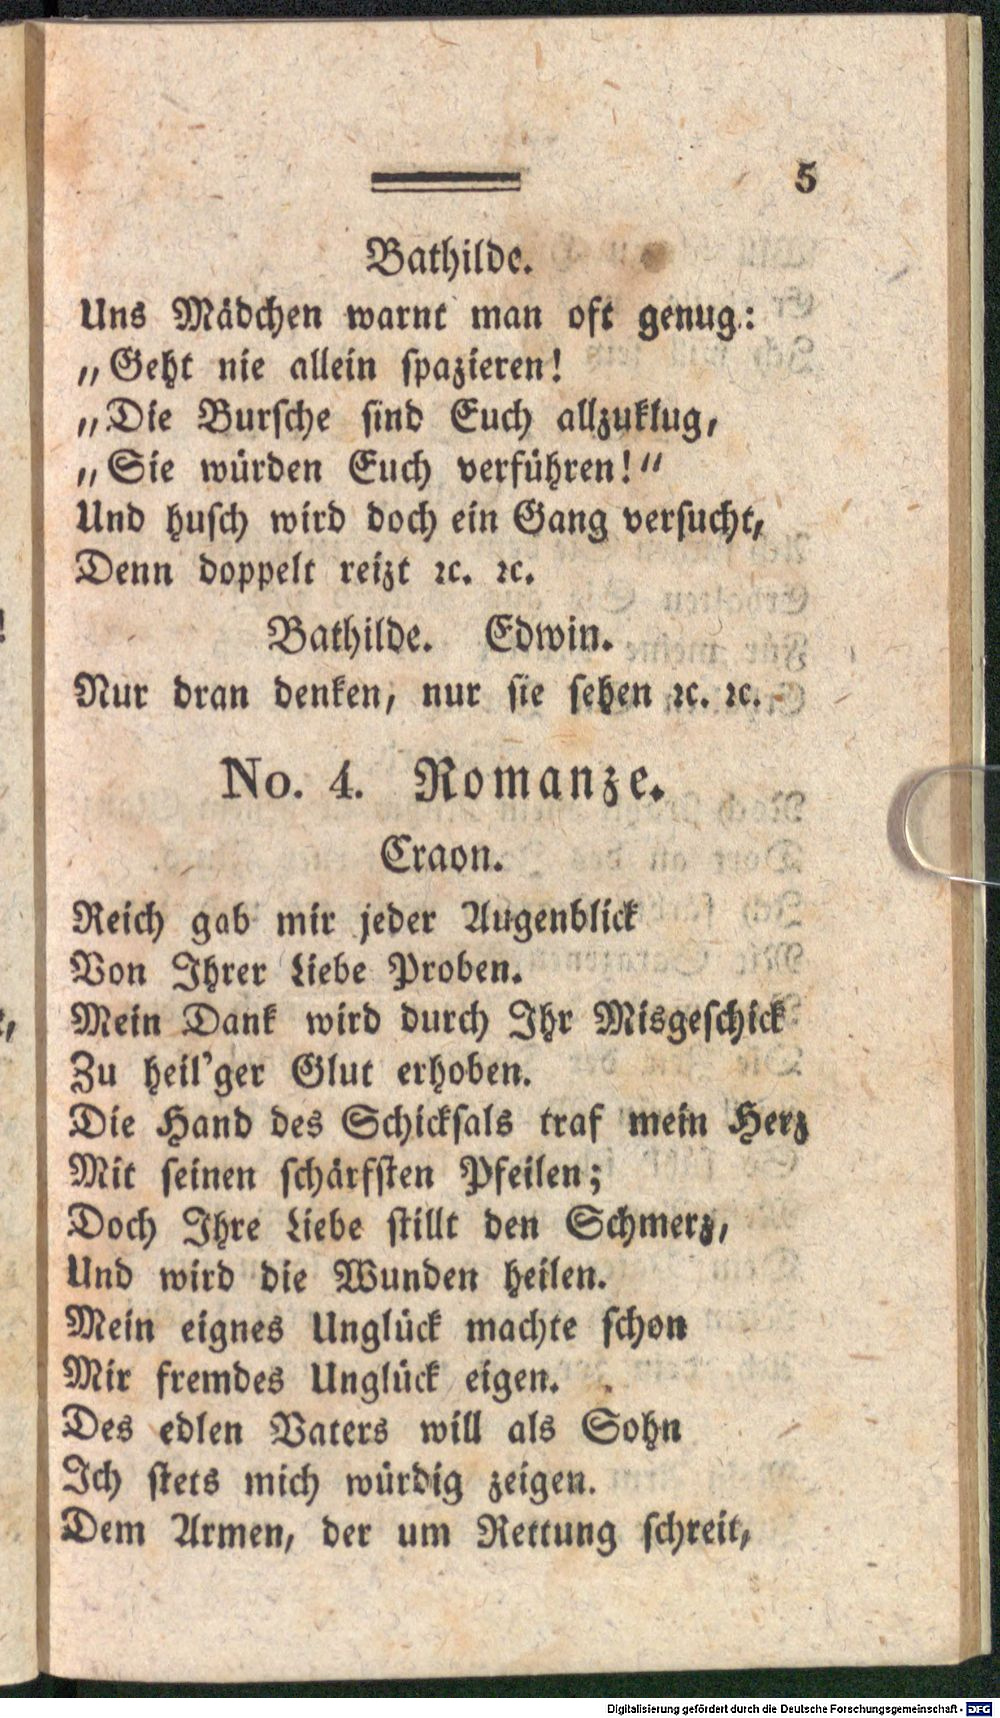 5
Bathilde.
Uns Mädchen warnt man oft genug:
„Geht nie allein spazieren!
„Die Bursche sind Euch allzuklug,
„Sie würden Euch verführen!“
Und husch wird doch ein Gang versucht,
Denn doppelt reizt ꝛc. ꝛc.
Bathilde. Edwin.
Nur dran denken, nur sie sehen ꝛc. ꝛc.
No. 4. Romanze.
Craon.
Reich gab mir jeder Augenblick
Von Ihrer Liebe Proben.
Mein Dank wird durch Ihr Misgeschick
Zu heil'ger Glut erhoben.
Die Hand des Schicksals traf mein Herz
Mit seinen schärfsten Pfeilen;
Doch Ihre Liebe stillt den Schmerz,
Und wird die Wunden heilen.
Mein eignes Unglück machte schon
Mir fremdes Unglück eigen.
Des edlen Vaters will als Sohn
Ich stets mich würdig zeigen.
Dem Armen, der um Rettung schreit,
Digitalisierung gefördert durch die Deutsche Forschungsgemeinschaft - DFG